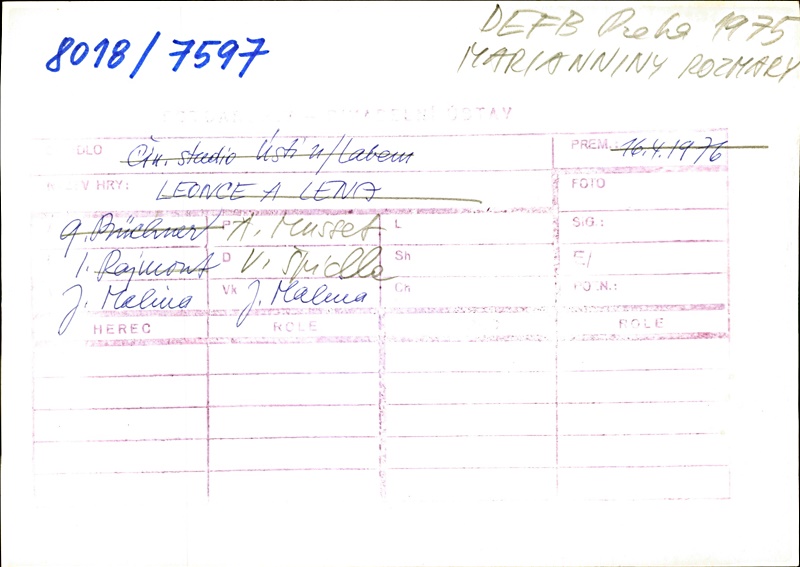 8018/7597
DEFB Praha 1975
MARIANNINY ROZMARY
DIVADELNÍ ÚSTAV
DLO Čin. studio Ústí n/Labem PREM.: 16.4.1976
V HRY: LEONCE A LENA FOTO
G. Büchner P A. Musset L SIG.:
I. Rajmont D V. Špidla Sh
J. Malina Vk J. Malina Ch
HEREC ROLE ROLE